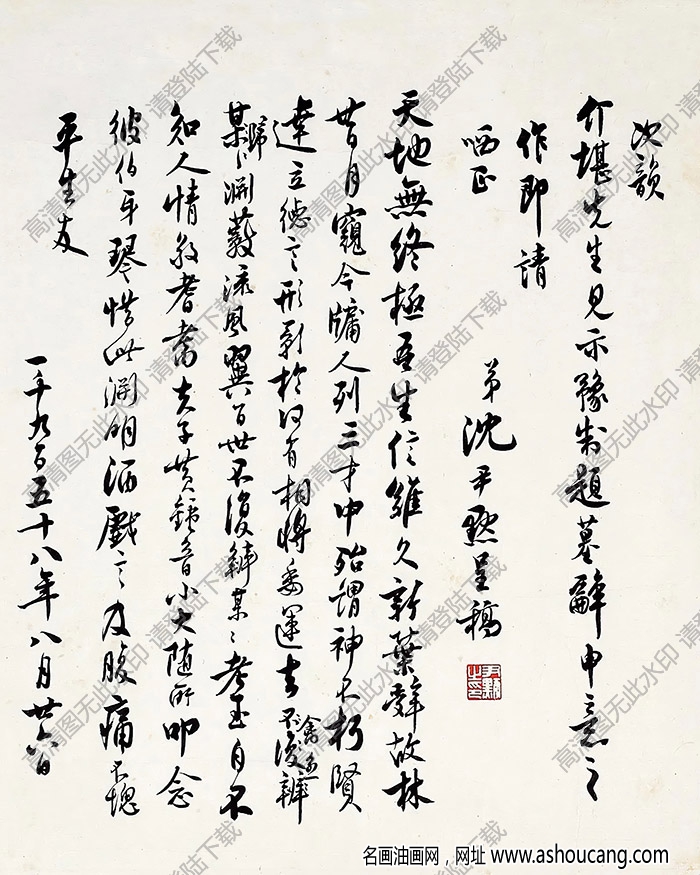 次韻
介堪先生見示豫制題墓辭申意之
作即請
哂正
弟沈尹默呈稿
天地無終極吾生信難久新葉辭故林
昔月窺今牖人列三才中殆謂神不朽賢
達立德言形影於何有相將委運去不復辨
歸淵藪流風翼百世不復辨某某考玉自不
知人情敬耆耇夫子黃鐘音小大隨所叩念
彼伯牙琴惜此淵明酒戲言及腹痛不愧
平生友
一千九百五十八年八月廿六日
高清图无此水印 请登陆下载
名画油画网，网址 www.ashoucang.com